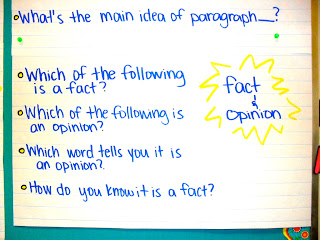 What's the main idea of paragraph__?
Which of the following
is a fact?
Which of the following is
an opinion?
Which word tells you it is
an opinion?
How do you know it is a fact?
fact
&
opinion